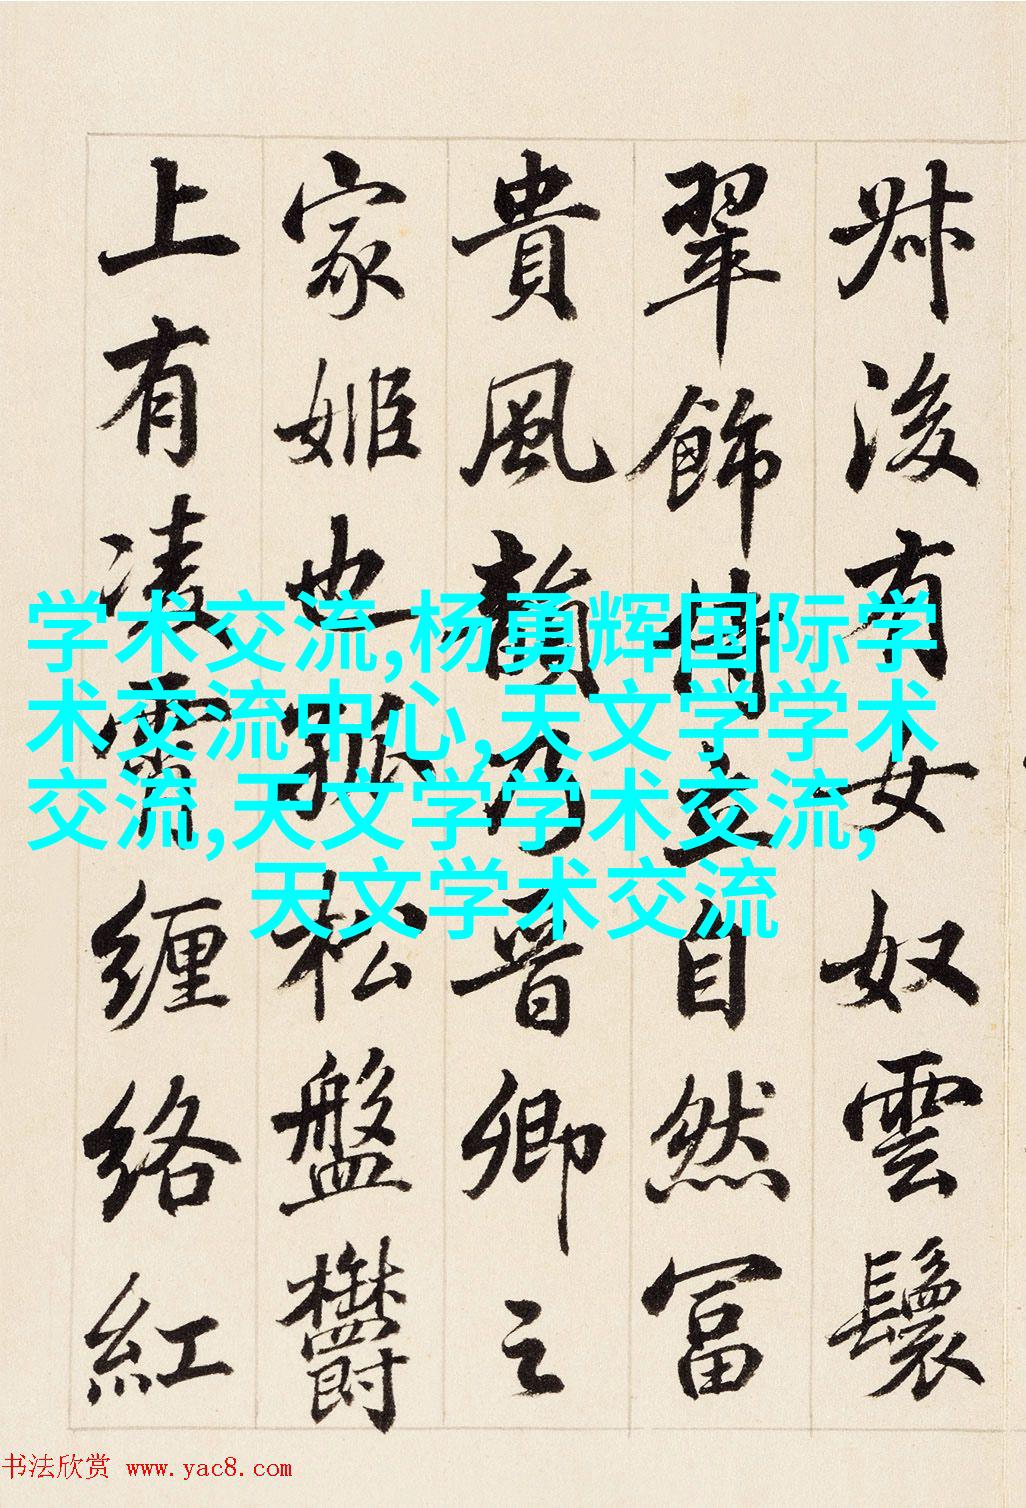 叔後有女奴雲鬟
翠飾侍立自然富
貴風韻乃晉卿之
家姬也孤松盤鬱
上有凌霄纏絡紅
学术交流,杨勇辉国际学
术交流中心,天文学学术
交流,天文学学术交流,
天文学术交流
书法欣赏 www.yac8.com